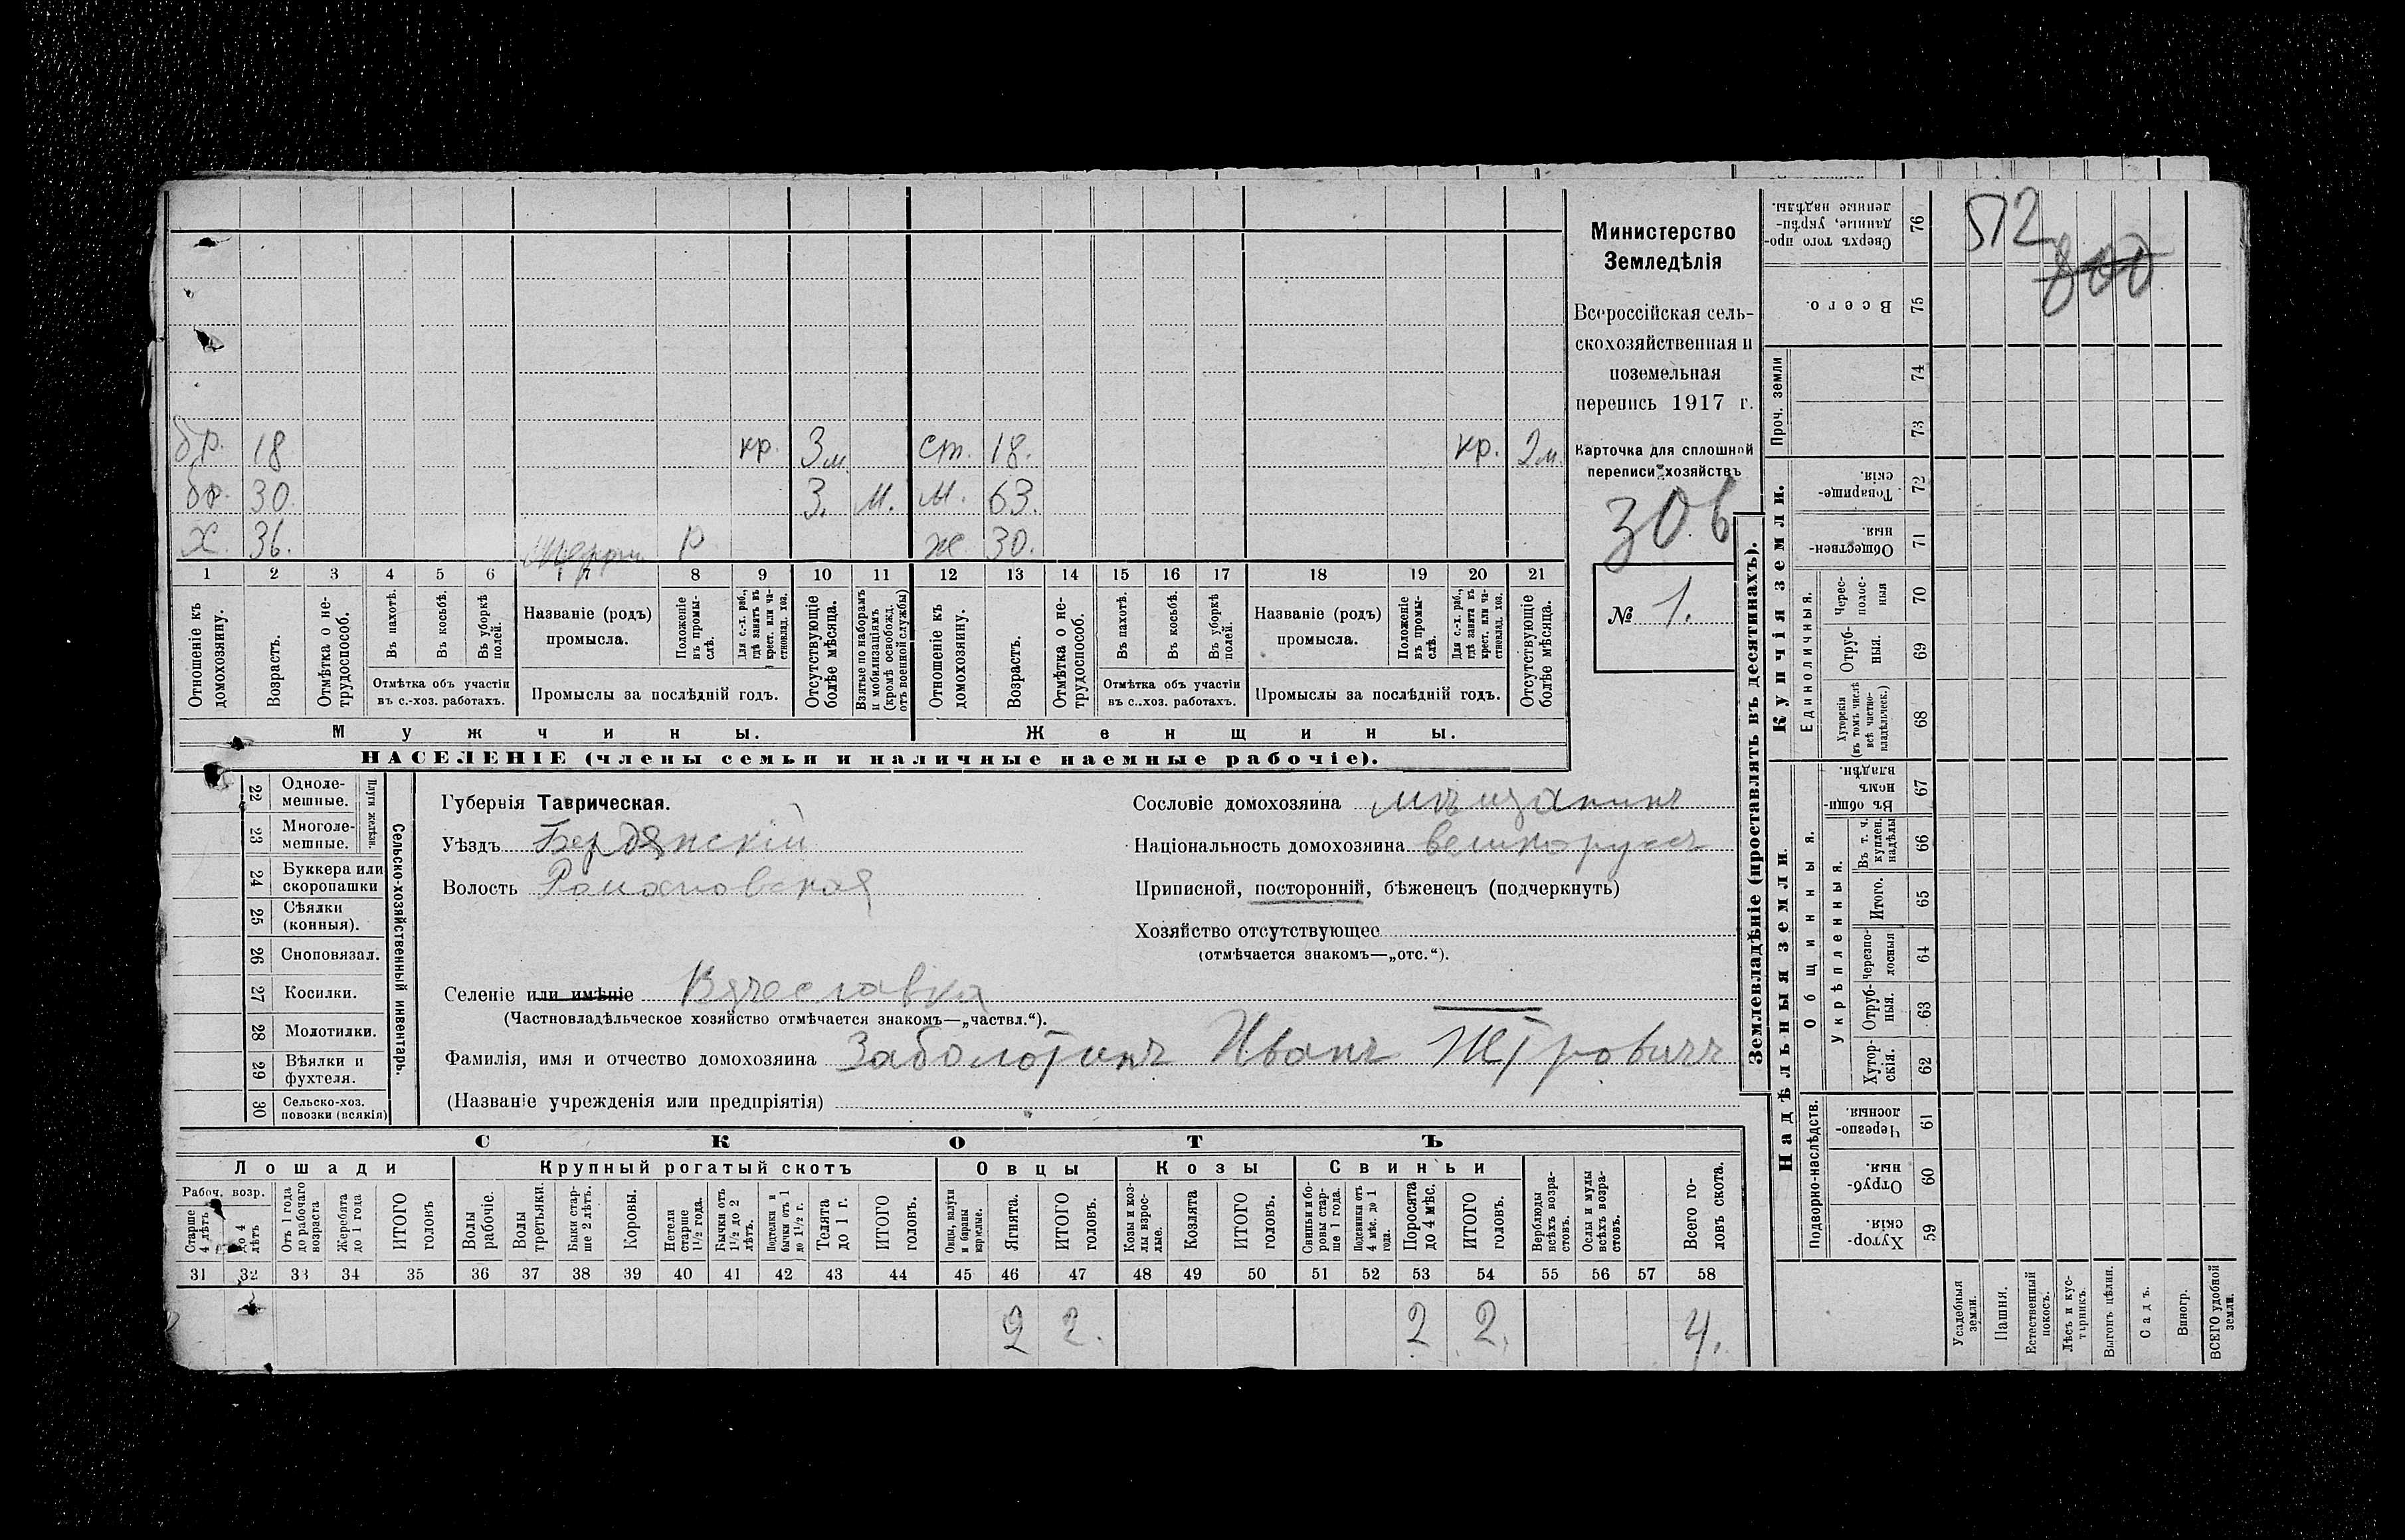 512
800
Министерство
Земледѣлія
Всероссійская сель-
скохозяйственная и
поземельная
перепись 1917 г.
Карточка для сплошной
переписи хозяйствъ
306
№ 1.
бр. 18 кр. 3 м. ст. 18. кр. 2 м.
бр. 30. 3. м. м. 63.
х. 36. Р ж. 30.
1 2 3 4 5 6 7 8 9 10 11 12 13 14 15 16 17 18 19 20 21
Отношеніе къ домохозяину.
Возрастъ.
Отмѣтка о не-трудоспособ.
Въ пахотѣ.
Въ косьбѣ.
Въ уборкѣ полей.
Отмѣтка объ участіи
въ с.-хоз. работахъ.
Названіе (родъ)
промысла.
Положеніе въ промы-слѣ.
Для с.-х. раб., гдѣ занятъ въ крест. или ча-стновлад. хоз.
Промыслы за послѣдній годъ.
Отсутствующіе болѣе мѣсяца.
Взятые по наборамъ и мобилизаціямъ (кромѣ освобожд. отъ военной службы)
Отношеніе къ домохозяину.
Возрастъ.
Отмѣтка о не-трудоспособ.
Въ пахотѣ.
Въ косьбѣ.
Въ уборкѣ полей.
Отмѣтка объ участіи
въ с..хоз. работахъ.
Названіе (родъ)
промысла.
Положеніе въ промы-слѣ.
Для с.-х. раб., гдѣ занята въ крест. или ча-стновлад. хоз.
Промыслы за послѣдній годъ.
Отсутствующіе болѣе мѣсяца.
Мужчины.
Женщины.
НАСЕЛЕНІЕ (члены семьи и наличные наемные рабочіе).
Сельско-хозяйственный инвентарь.
Плуги желѣзн.
22 Одноле-мешные.
23 Многоле-мешные.
24 Буккера или скоропашки
25 Сѣялки (конныя).
26 Сноповязал.
27 Косилки.
28 Молотилки.
29 Вѣялки и фухтеля.
30 Сельско-хоз. повозки (всякія)
Губернія Таврическая.
Уѣздъ Бердянскій
Волость Романовская
Селеніе или имѣніе Вячеславка
(Частновладѣльческое хозяйство отмѣчается знакомъ—„частвл.“).
Сословіе домохозяина мѣщанинъ
Національность домохозяина великоруссъ
Приписной, посторонній, бѣженецъ (подчеркнуть)
Хозяйство отсутствующее
(отмѣчается знакомъ—„отс.“).
Фамилія, имя и отчество домохозяина Заболотинъ Иванъ Петровичъ
(Названіе учрежденія или предпріятія)
СКОТЪ
Лошади
Крупный рогатый скотъ
Овцы
Козы
Свиньи
Рабоч. возр.
Старше 4 лѣтъ
до 4 лѣтъ
Отъ 1 года до рабочаго возраста
Жеребята до 1 года
ИТОГО головъ
Волы рабочіе.
Волы третьяки.
Быки стар-ше 2 лѣтъ.
Коровы.
Нетели старше 1½ года.
Бычки отъ 1½ до 2 лѣтъ.
Подтелки и бычки отъ 1 до 1½ г.
Телята до 1 г.
ИТОГО головъ.
Овцы, валухи и бараны взрослые.
Ягнята.
ИТОГО головъ.
Козы и коз-лы взрос-лые.
Козлята
ИТОГО головъ.
Свиньи и бо-ровы стар-ше 1 года.
Подсвинки отъ 4 мѣс. до 1 года.
Поросята до 4 мѣс.
ИТОГО головъ.
Верблюды всѣхъ возра-стовъ.
Ослы и мулы всѣхъ возра-стовъ.
Всего го-ловъ скота.
31 32 33 34 35 36 37 38 39 40 41 42 43 44 45 46 47 48 49 50 51 52 53 54 55 56 57 58
2 2. 2 2. 4.
Землевладѣніе (проставлять въ десятинахъ).
Надѣльныя земли.
Купчія земли.
Проч. земли
Подворно-наслѣдств.
Общинныя.
Укрѣпленныя.
Единоличныя.
Сверхъ того про-данные, укрѣп-ленные надѣлы. 76
Всего. 75
74
73
Товарище-скія. 72
Обществен-ныя. 71
Черес-полос-ныя 70
Отруб-ныя. 69
Хуторскія (въ томъ числѣ всѣ частно-владѣльческ.) 68
Въ общин-номъ владѣн. 67
Въ т. ч. куплен. надѣлы 66
Итого. 65
Черезпо-лосныя 64
Отруб-ныя. 63
Хутор-скія. 62
Черезпо-лосныя. 61
Отруб-ныя. 60
Хутор-скія. 59
Усадебныя земли.
Пашня.
Естественный покосъ.
Лѣсъ и кус-тарникъ.
Выгонъ цѣлин.
Садъ.
Виногр.
ВСЕГО удобной земли.